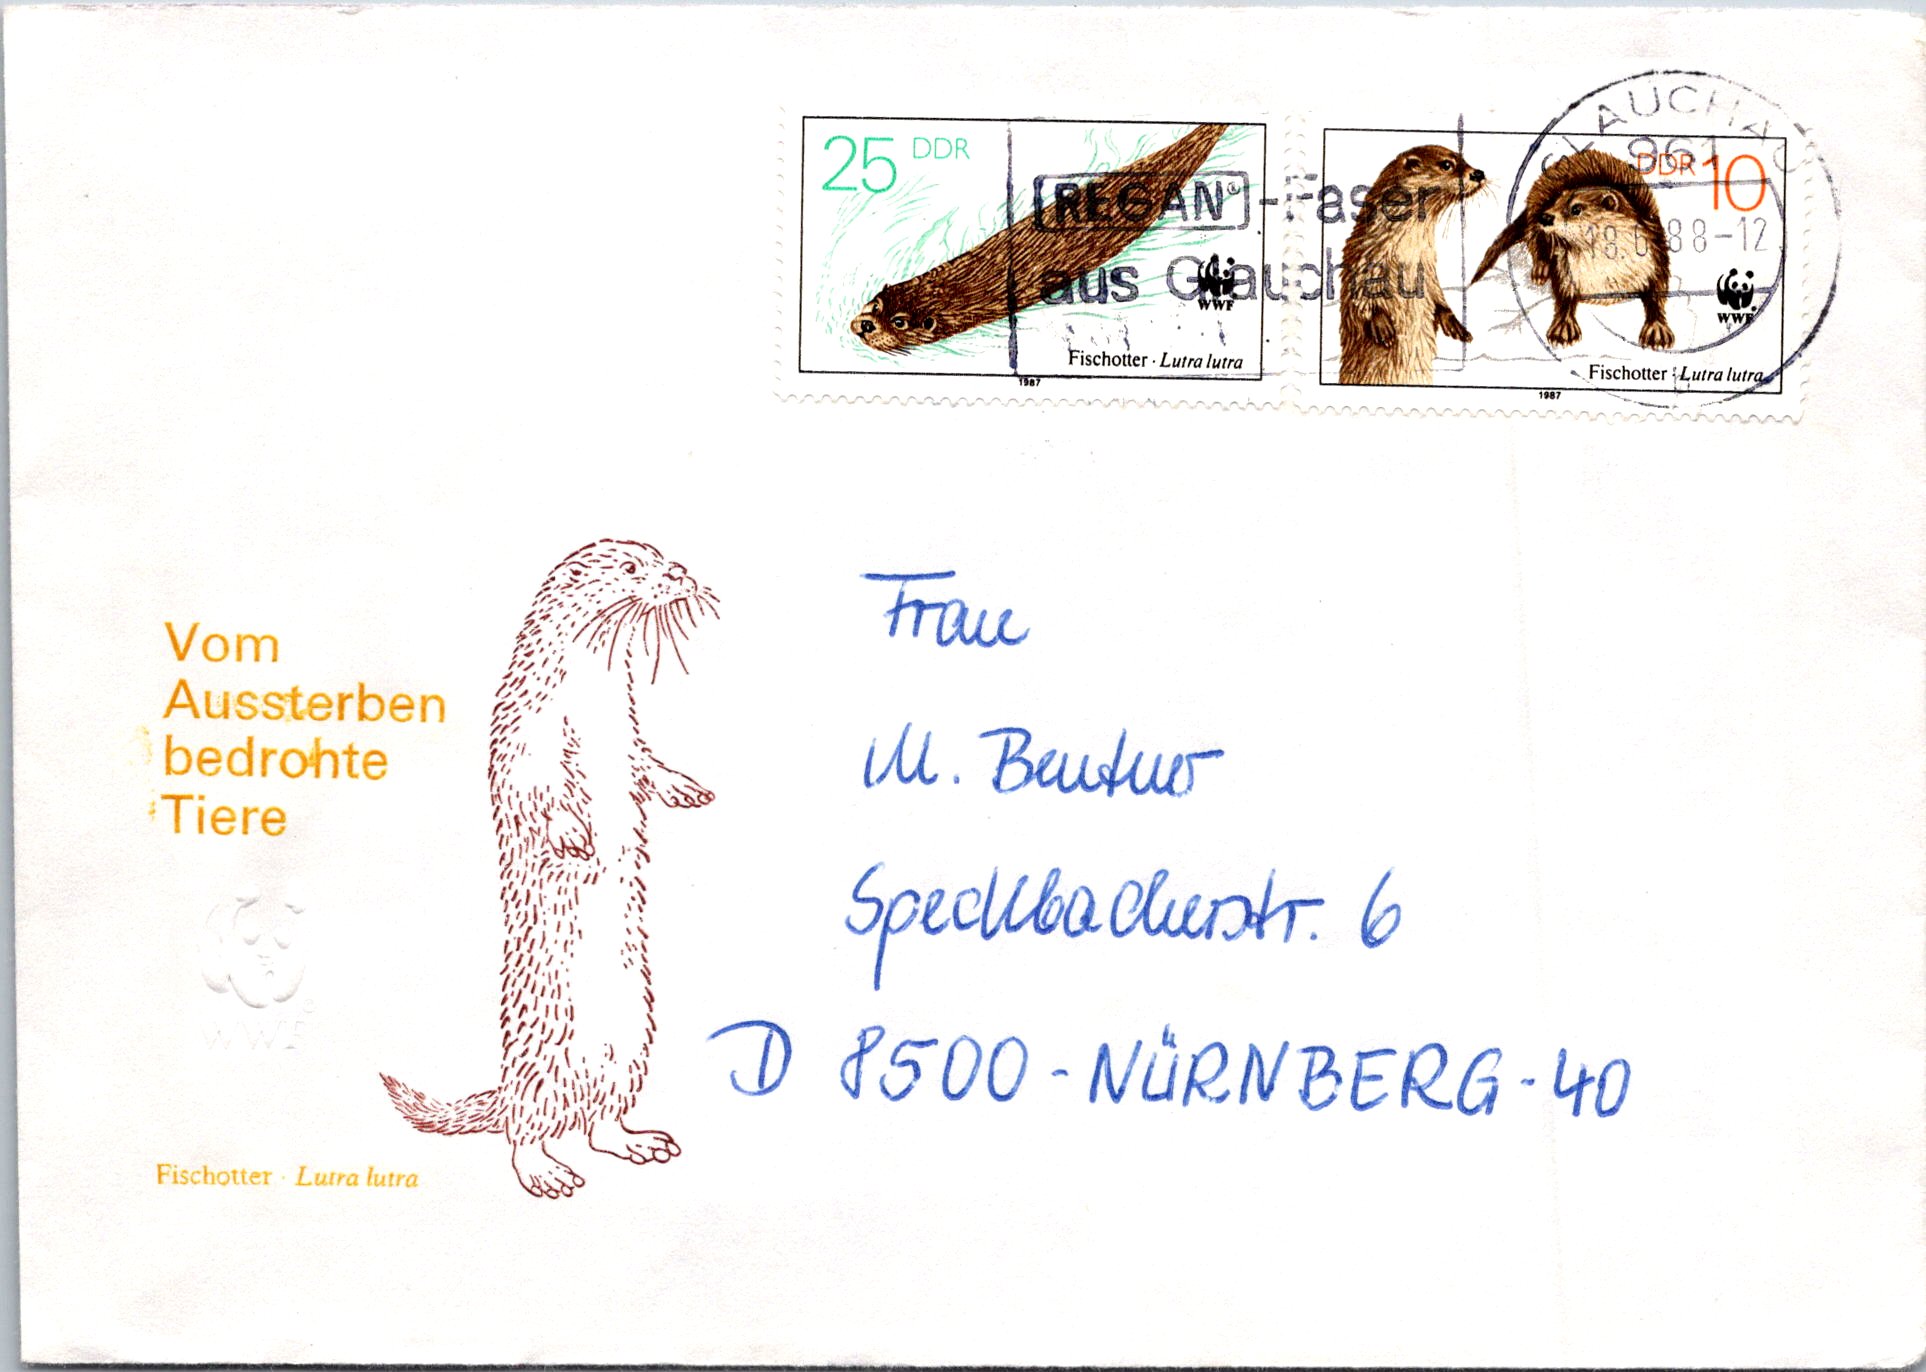 25 DDR
REGAN® -Faser
aus Glauchau
WWF
Fischotter · Lutra lutra
1987
GLAUCHAU
961
DDR 10
88-12
WWF
Fischotter · Lutra lutra
1987
Vom
Aussterben
bedrohte
Tiere
WWF
Fischotter · Lutra lutra
Frau
M. Bentner
Speckbacherstr. 6
D 8500 - NÜRNBERG - 40